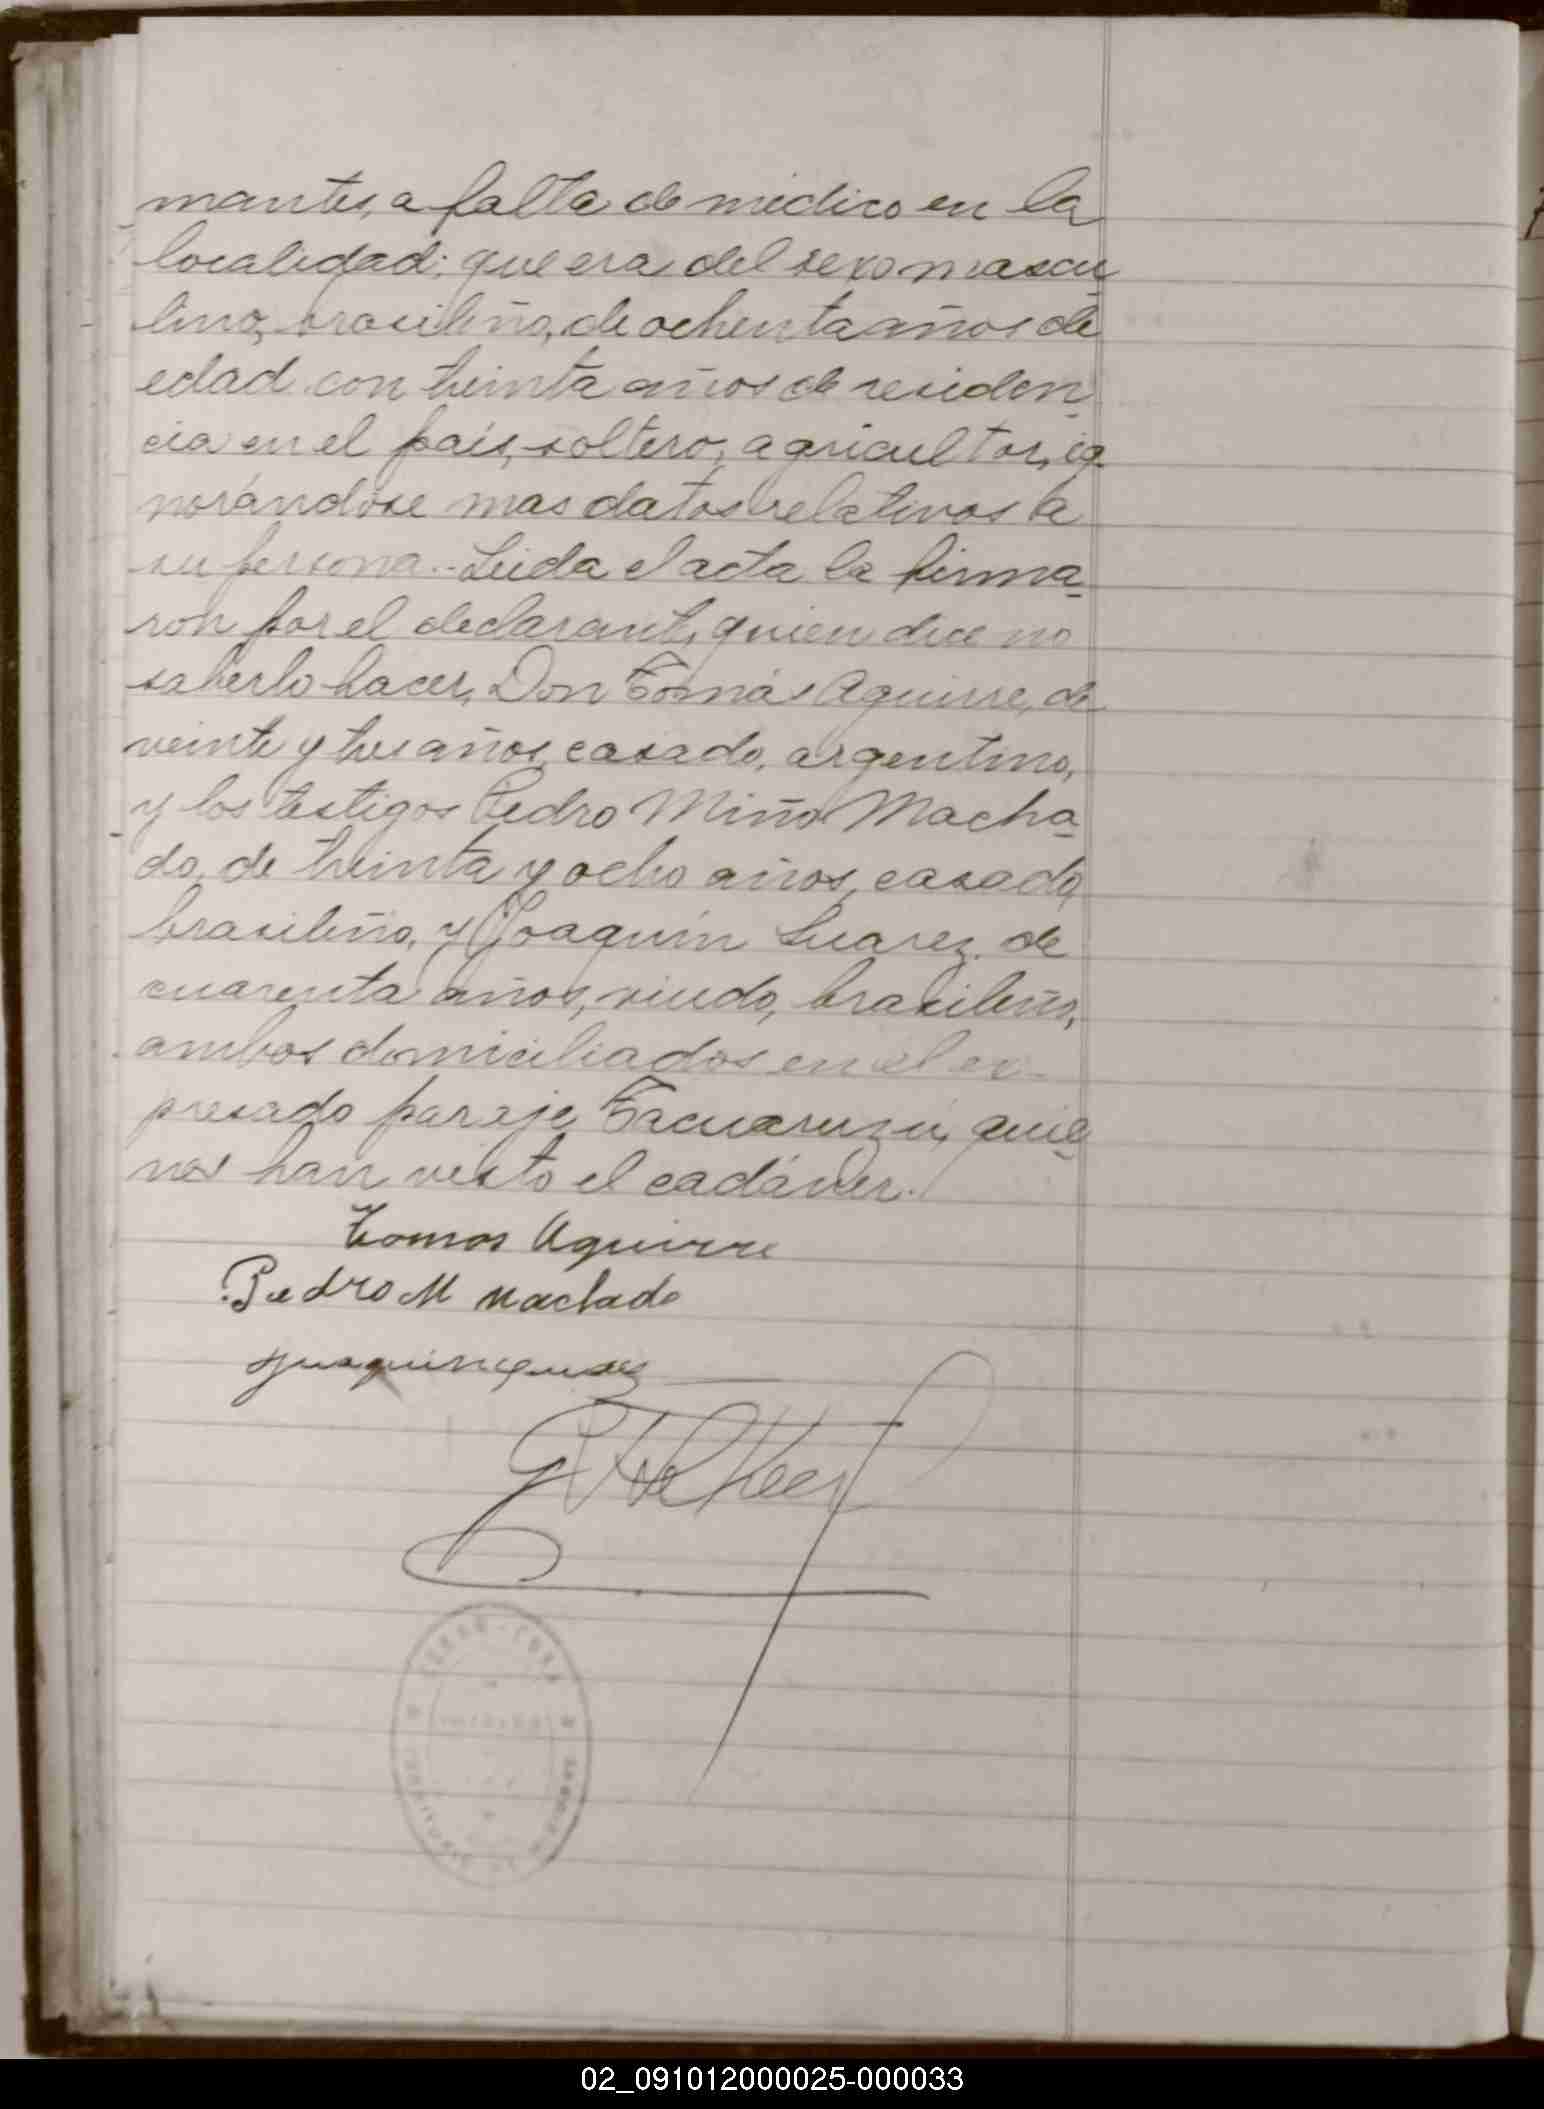 mantes, a falta de médico en la
localidad; que era del sexo mascu
lino, brasileño, de ochenta años de
edad con treinta años de residen
cia en el país, soltero, agricultor, ig
norándose mas datos relativos a
su persona.- Leida el acta la firma
ron por el declarante, quien dice no
saberlo hacer, Don Tomás Aguirre, de
veinte y tres años, casado, argentino,
y los testigos Pedro Miño Macha
do, de treinta y ocho años, casado,
brasileño, y Joaquín Suarez, de
cuarenta años, viudo, brasileño,
ambos domiciliados en el ex-
presado paraje Tacuaruzú, quie
nes han visto el cadáver.
Tomas Aguirre
Pedro M Machado
CERRO-CORÁ
TERRITORIO DE MISIONES
02_091012000025-000033